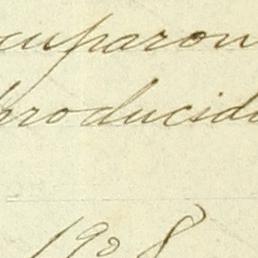 cuparon
producid
1908